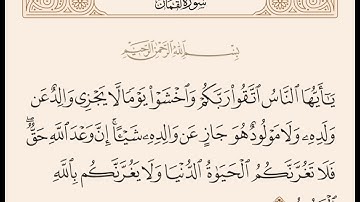 سُورَةُ لُقْمَانَ
بِسْمِ ٱللَّهِ ٱلرَّحْمَٰنِ ٱلرَّحِيمِ
يَـٰٓأَيُّهَا ٱلنَّاسُ ٱتَّقُوا۟ رَبَّكُمْ وَٱخْشَوْا۟ يَوْمًا لَّا يَجْزِى وَالِدٌ عَن
وَلَدِهِۦ وَلَا مَوْلُودٌ هُوَ جَازٍ عَن وَالِدِهِۦ شَيْـًٔا ۚ إِنَّ وَعْدَ ٱللَّهِ حَقٌّ ۖ
فَلَا تَغُرَّنَّكُمُ ٱلْحَيَوٰةُ ٱلدُّنْيَا وَلَا يَغُرَّنَّكُم بِٱللَّهِ